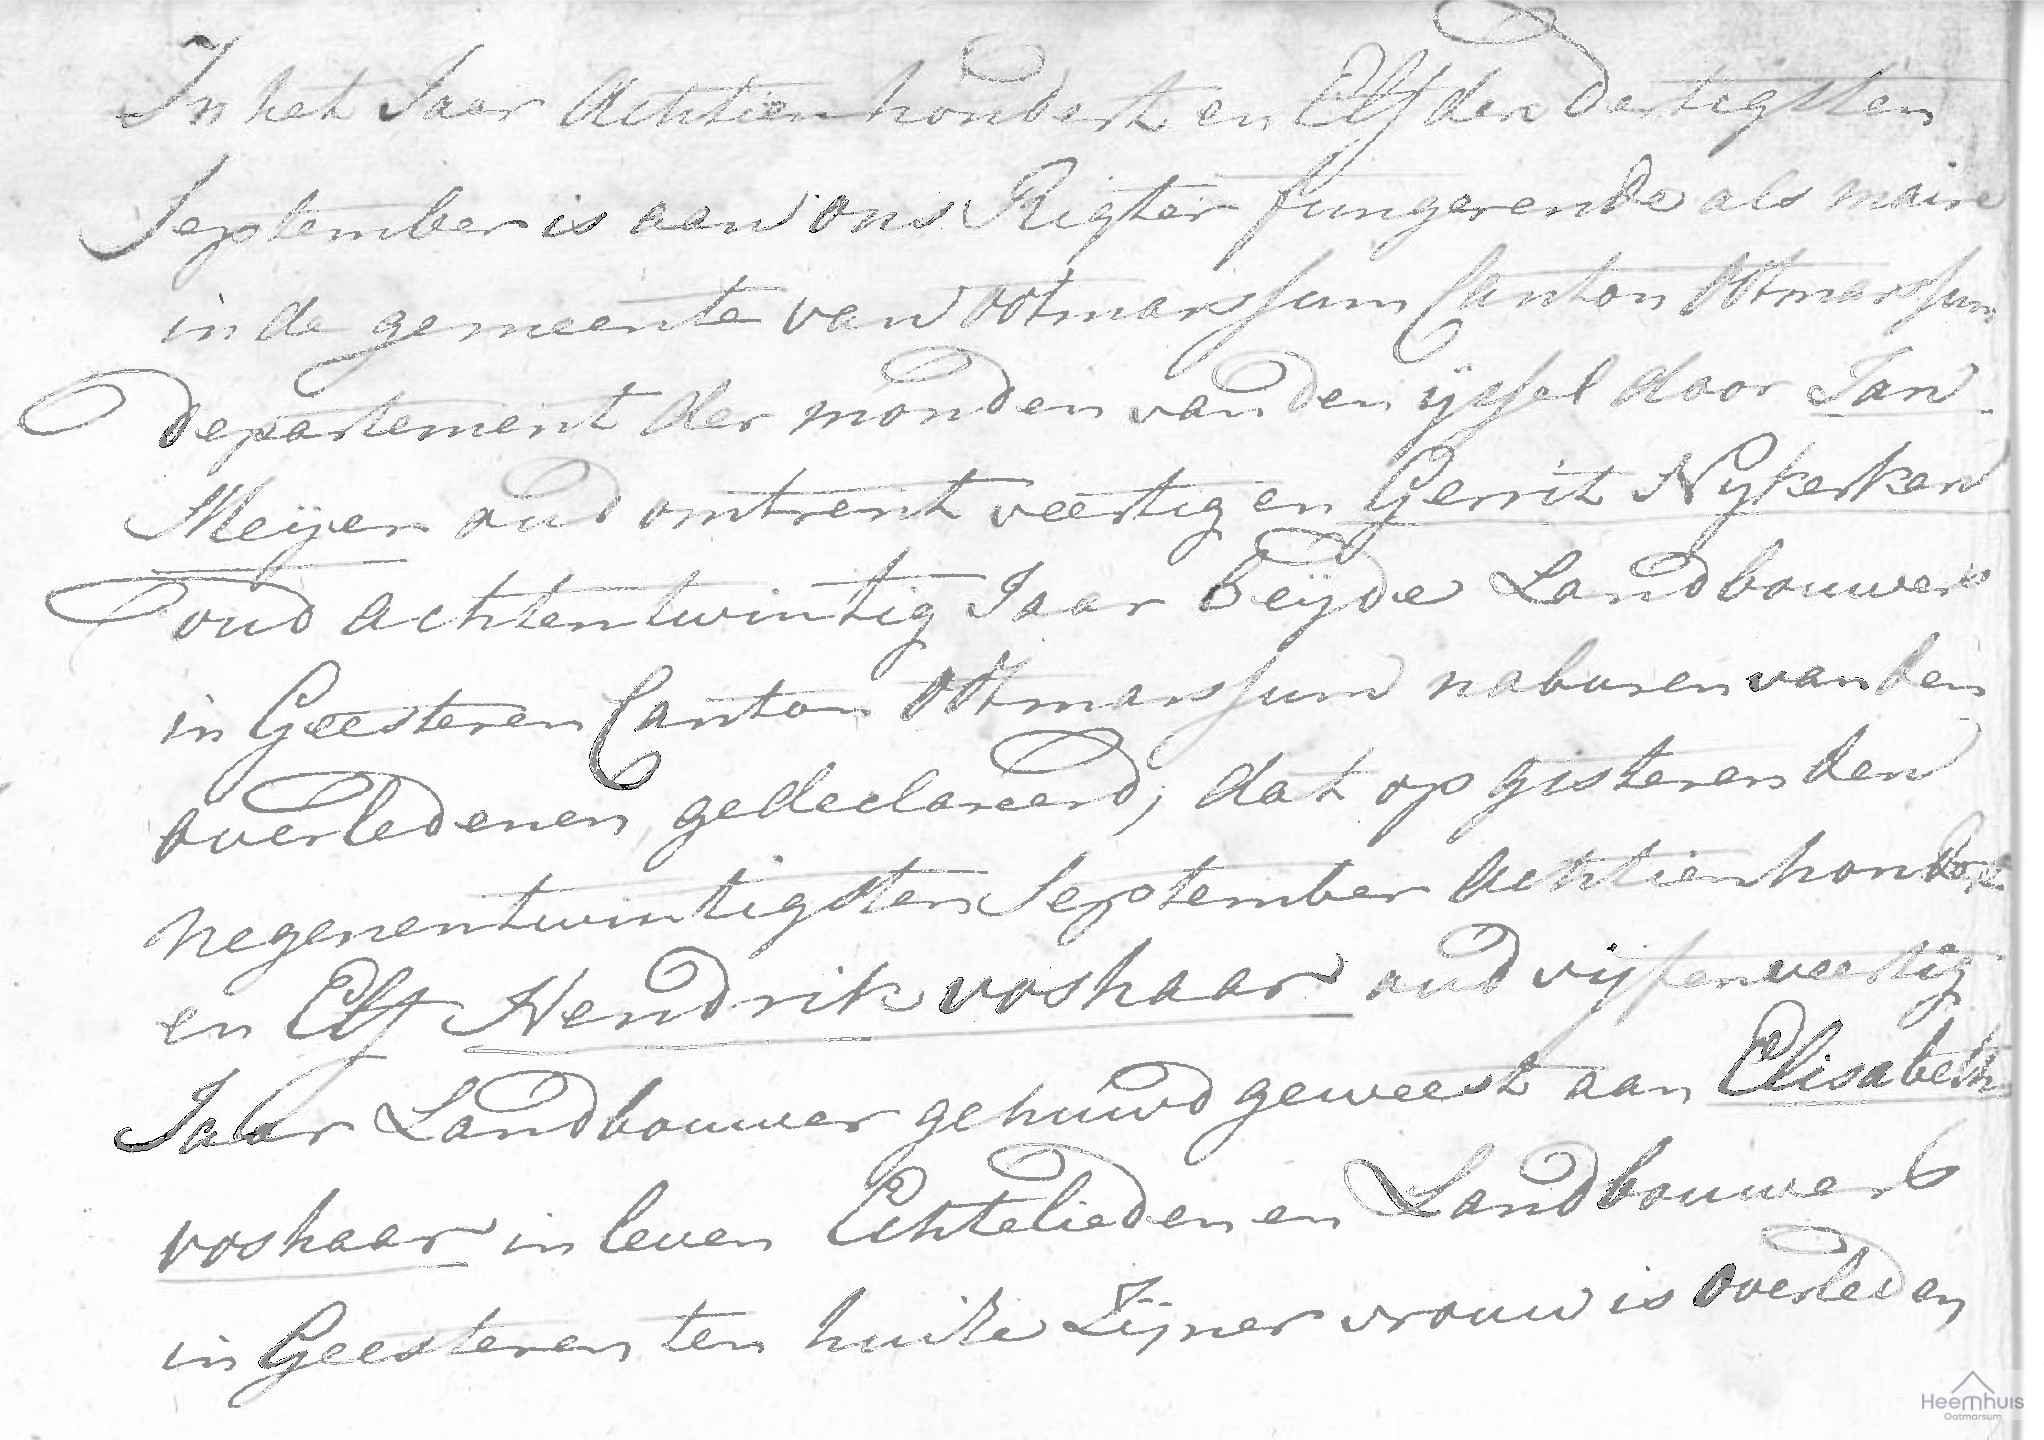 In het Jaar Achtienhondert en Elf den Dertigsten
September is aan ons Rigter fungerende als maire
in de gemeente van Ootmarssum Canton Ootmarssum
Departement der monden van den ijssel door Jan
Meijer oud omtrent veertig en Gerrit Nykerken
oud achtentwintig Jaar Beijde Landbouwers
in Geesteren Canton Ootmarssum naburen van den
overledenen gedeclareerd, dat op gisteren den
negenentwintigsten September Achtienhondert
en Elf Hendrik voshaar oud vijfenveertig
Jaar Landbouwer gehuwd geweest aan Elisabeth
voshaar in leven Echtelieden en Landbouwers
in Geesteren ten huize Zijner vrouw is overleden
Heemhuis
Ootmarsum